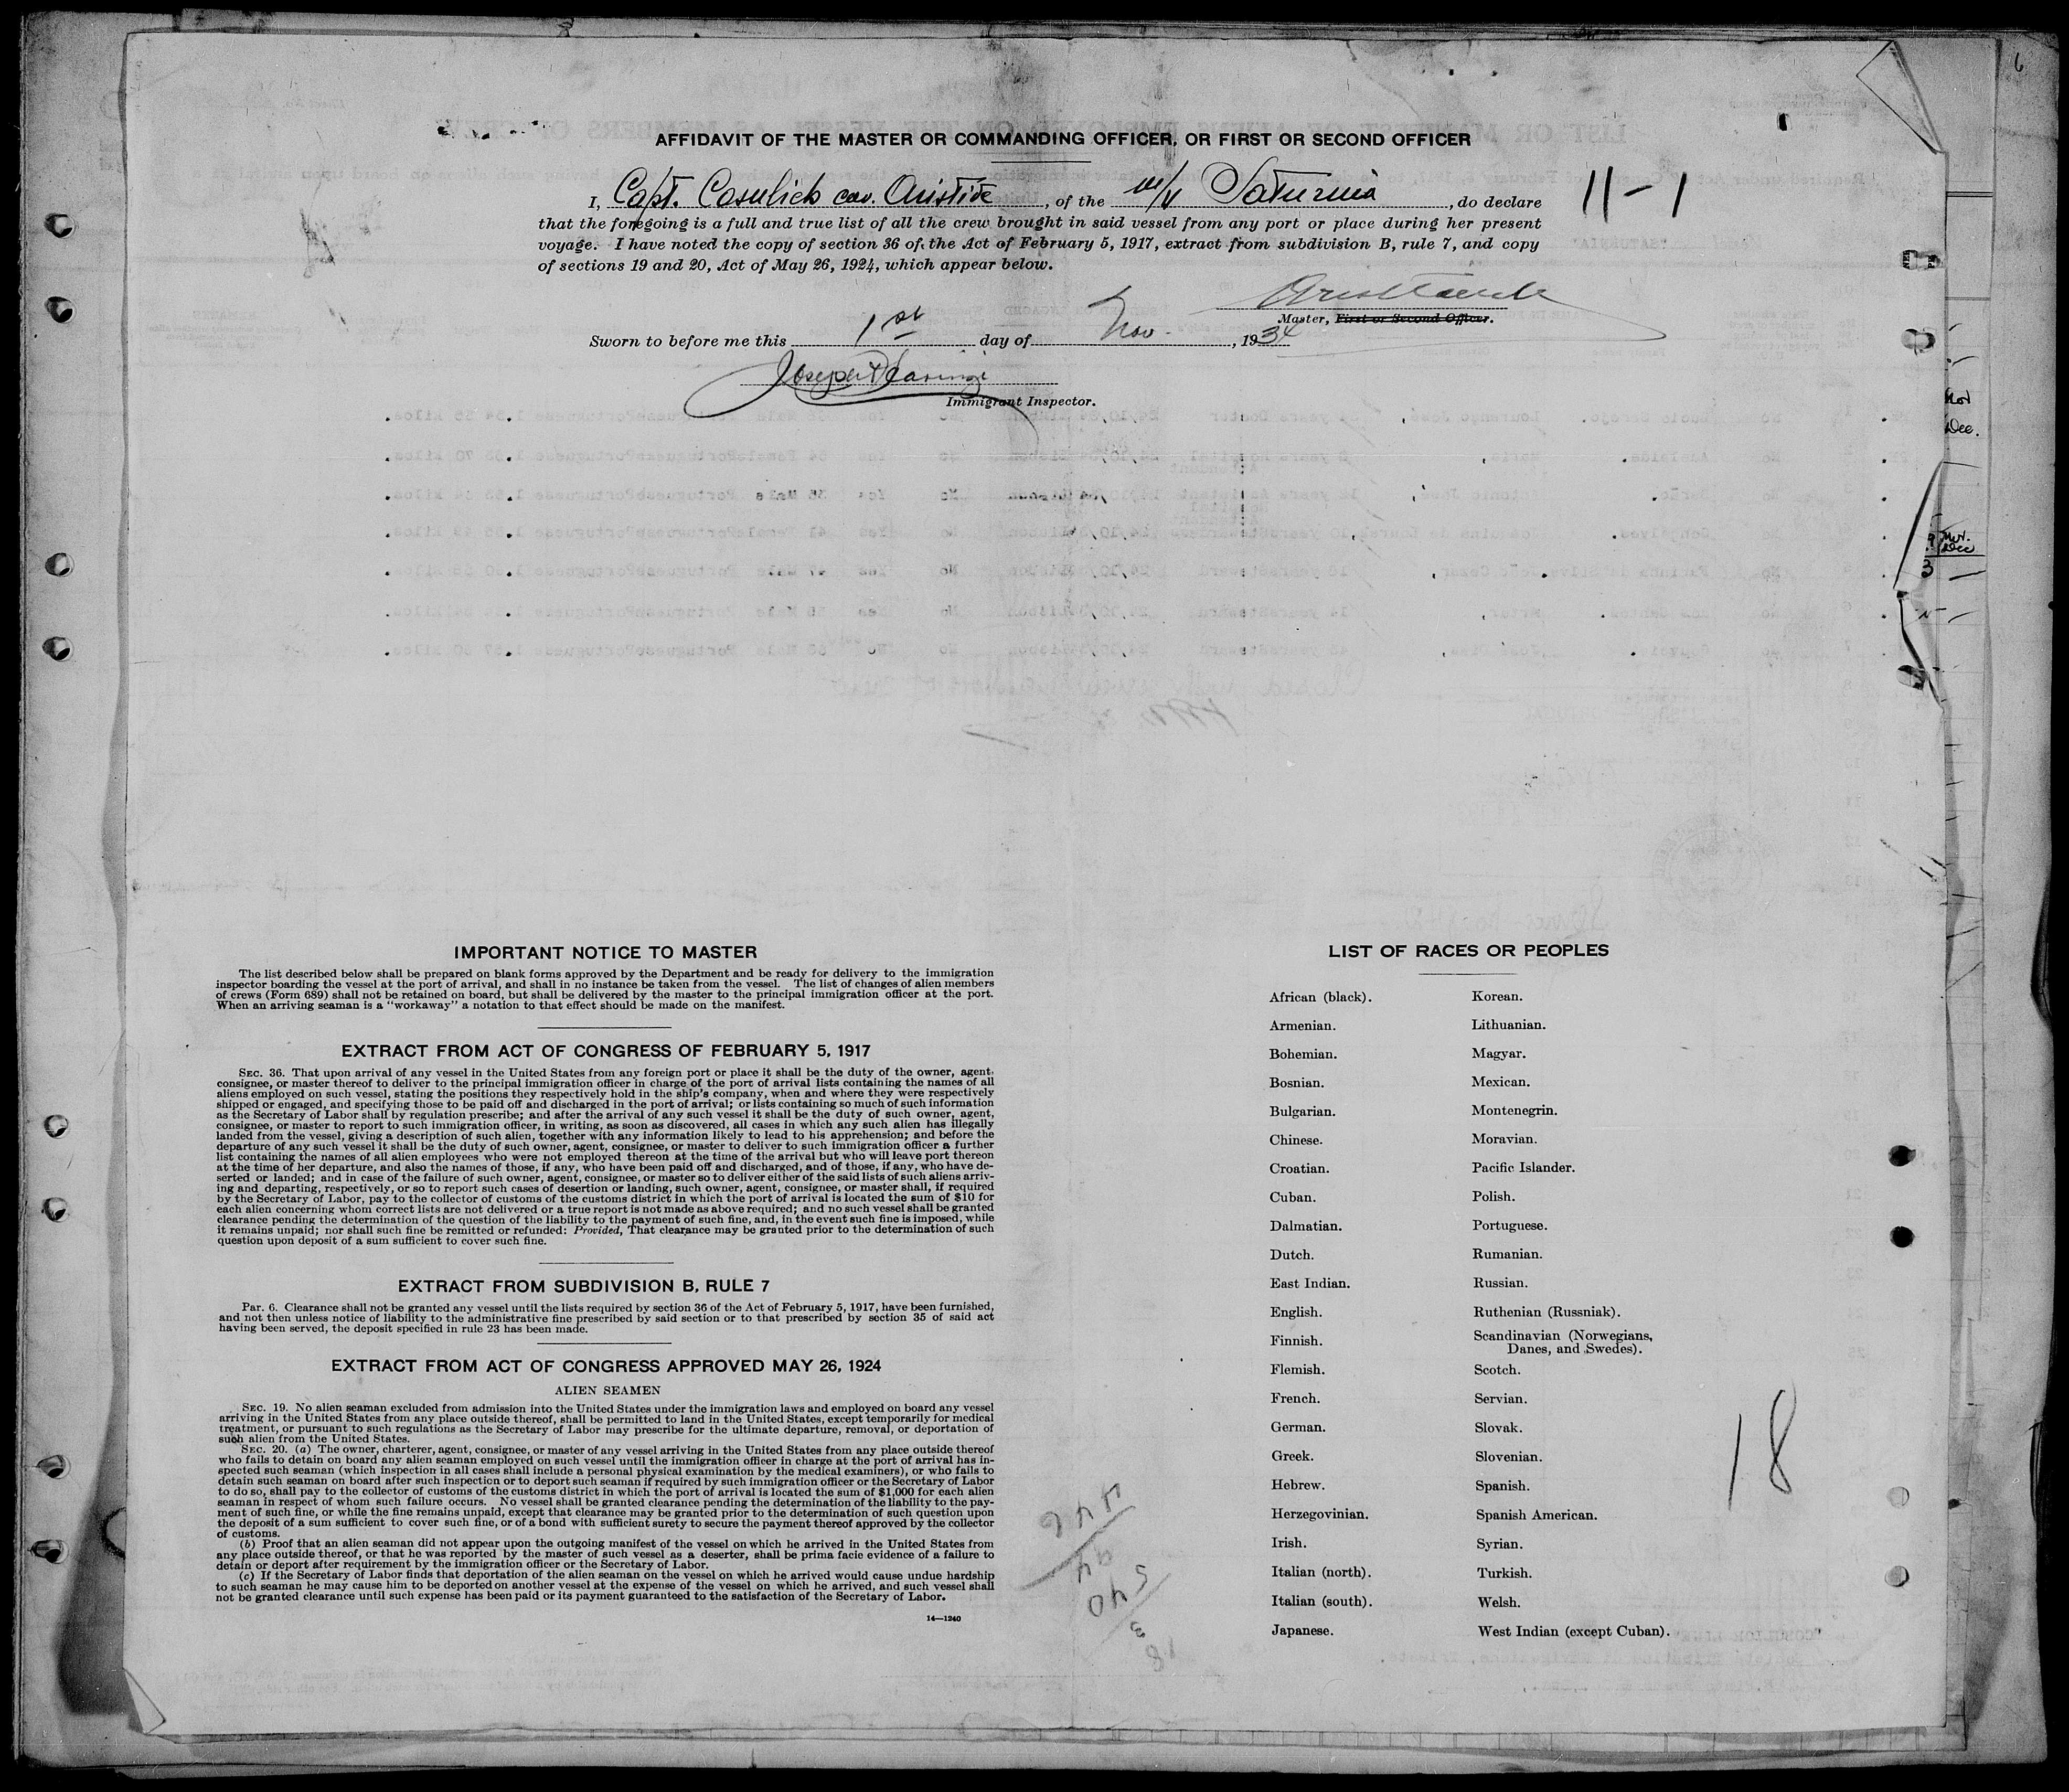 AFFIDAVIT OF THE MASTER OR COMMANDING OFFICER, OR FIRST OR SECOND OFFICER
I, Capt. Cosulich cav. Aristide, of the m/v Saturnia, do declare
11-1
that the foregoing is a full and true list of all the crew brought in said vessel from any port or place during her present
voyage. I have noted the copy of section 36 of the Act of February 5, 1917, extract from subdivision B, rule 7, and copy
of sections 19 and 20, Act of May 26, 1924, which appear below.
Master, First or Second Officer.
Sworn to before me this 1st day of Nov. , 1934
Joseph
Immigrant Inspector.
Nov
Dec.
Nov.
Dec
3
IMPORTANT NOTICE TO MASTER
The list described below shall be prepared on blank forms approved by the Department and be ready for delivery to the immigration
inspector boarding the vessel at the port of arrival, and shall in no instance be taken from the vessel. The list of changes of alien members
of crews (Form 689) shall not be retained on board, but shall be delivered by the master to the principal immigration officer at the port.
When an arriving seaman is a "workaway" a notation to that effect should be made on the manifest.
EXTRACT FROM ACT OF CONGRESS OF FEBRUARY 5, 1917
SEC. 36. That upon arrival of any vessel in the United States from any foreign port or place it shall be the duty of the owner, agent,
consignee, or master thereof to deliver to the principal immigration officer in charge of the port of arrival lists containing the names of all
aliens employed on such vessel, stating the positions they respectively hold in the ship's company, when and where they were respectively
shipped or engaged, and specifying those to be paid off and discharged in the port of arrival; or lists containing so much of such information
as the Secretary of Labor shall by regulation prescribe; and after the arrival of any such vessel it shall be the duty of such owner, agent,
consignee, or master to report to such immigration officer, in writing, as soon as discovered, all cases in which any such alien has illegally
landed from the vessel, giving a description of such alien, together with any information likely to lead to his apprehension; and before the
departure of any such vessel it shall be the duty of such owner, agent, consignee, or master to deliver to such immigration officer a further
list containing the names of all alien employees who were not employed thereon at the time of the arrival but who will leave port thereon
at the time of her departure, and also the names of those, if any, who have been paid off and discharged, and of those, if any, who have de-
serted or landed; and in case of the failure of such owner, agent, consignee, or master so to deliver either of the said lists of such aliens arriv-
ing and departing, respectively, or so to report such cases of desertion or landing, such owner, agent, consignee, or master shall, if required
by the Secretary of Labor, pay to the collector of customs of the customs district in which the port of arrival is located the sum of $10 for
each alien concerning whom correct lists are not delivered or a true report is not made as above required; and no such vessel shall be granted
clearance pending the determination of the question of the liability to the payment of such fine, and, in the event such fine is imposed, while
it remains unpaid; nor shall such fine be remitted or refunded: Provided, That clearance may be granted prior to the determination of such
question upon deposit of a sum sufficient to cover such fine.
EXTRACT FROM SUBDIVISION B, RULE 7
Par. 6. Clearance shall not be granted any vessel until the lists required by section 36 of the Act of February 5, 1917, have been furnished,
and not then unless notice of liability to the administrative fine prescribed by said section or to that prescribed by section 35 of said act
having been served, the deposit specified in rule 23 has been made.
EXTRACT FROM ACT OF CONGRESS APPROVED MAY 26, 1924
ALIEN SEAMEN
SEC. 19. No alien seaman excluded from admission into the United States under the immigration laws and employed on board any vessel
arriving in the United States from any place outside thereof, shall be permitted to land in the United States, except temporarily for medical
treatment, or pursuant to such regulations as the Secretary of Labor may prescribe for the ultimate departure, removal, or deportation of
such alien from the United States.
SEC. 20. (a) The owner, charterer, agent, consignee, or master of any vessel arriving in the United States from any place outside thereof
who fails to detain on board any alien seaman employed on such vessel until the immigration officer in charge at the port of arrival has in-
spected such seaman (which inspection in all cases shall include a personal physical examination by the medical examiners), or who fails to
detain such seaman on board after such inspection or to deport such seaman if required by such immigration officer or the Secretary of Labor
to do so, shall pay to the collector of customs of the customs district in which the port of arrival is located the sum of $1,000 for each alien
seaman in respect of whom such failure occurs. No vessel shall be granted clearance pending the determination of the liability to the pay-
ment of such fine, or while the fine remains unpaid, except that clearance may be granted prior to the determination of such question upon
the deposit of a sum sufficient to cover such fine, or of a bond with sufficient surety to secure the payment thereof approved by the collector
of customs.
(b) Proof that an alien seaman did not appear upon the outgoing manifest of the vessel on which he arrived in the United States from
any place outside thereof, or that he was reported by the master of such vessel as a deserter, shall be prima facie evidence of a failure to
detain or deport after requirement by the immigration officer or the Secretary of Labor.
(c) If the Secretary of Labor finds that deportation of the alien seaman on the vessel on which he arrived would cause undue hardship
to such seaman he may cause him to be deported on another vessel at the expense of the vessel on which he arrived, and such vessel shall
not be granted clearance until such expense has been paid or its payment guaranteed to the satisfaction of the Secretary of Labor.
14—1240
LIST OF RACES OR PEOPLES
African (black).
Armenian.
Bohemian.
Bosnian.
Bulgarian.
Chinese.
Croatian.
Cuban.
Dalmatian.
Dutch.
East Indian.
English.
Finnish.
Flemish.
French.
German.
Greek.
Hebrew.
Herzegovinian.
Irish.
Italian (north).
Italian (south).
Japanese.
Korean.
Lithuanian.
Magyar.
Mexican.
Montenegrin.
Moravian.
Pacific Islander.
Polish.
Portuguese.
Rumanian.
Russian.
Ruthenian (Russniak).
Scandinavian (Norwegians,
Danes, and Swedes).
Scotch.
Servian.
Slovak.
Slovenian.
Spanish.
Spanish American.
Syrian.
Turkish.
Welsh.
West Indian (except Cuban).
18
18
3
540
94
446